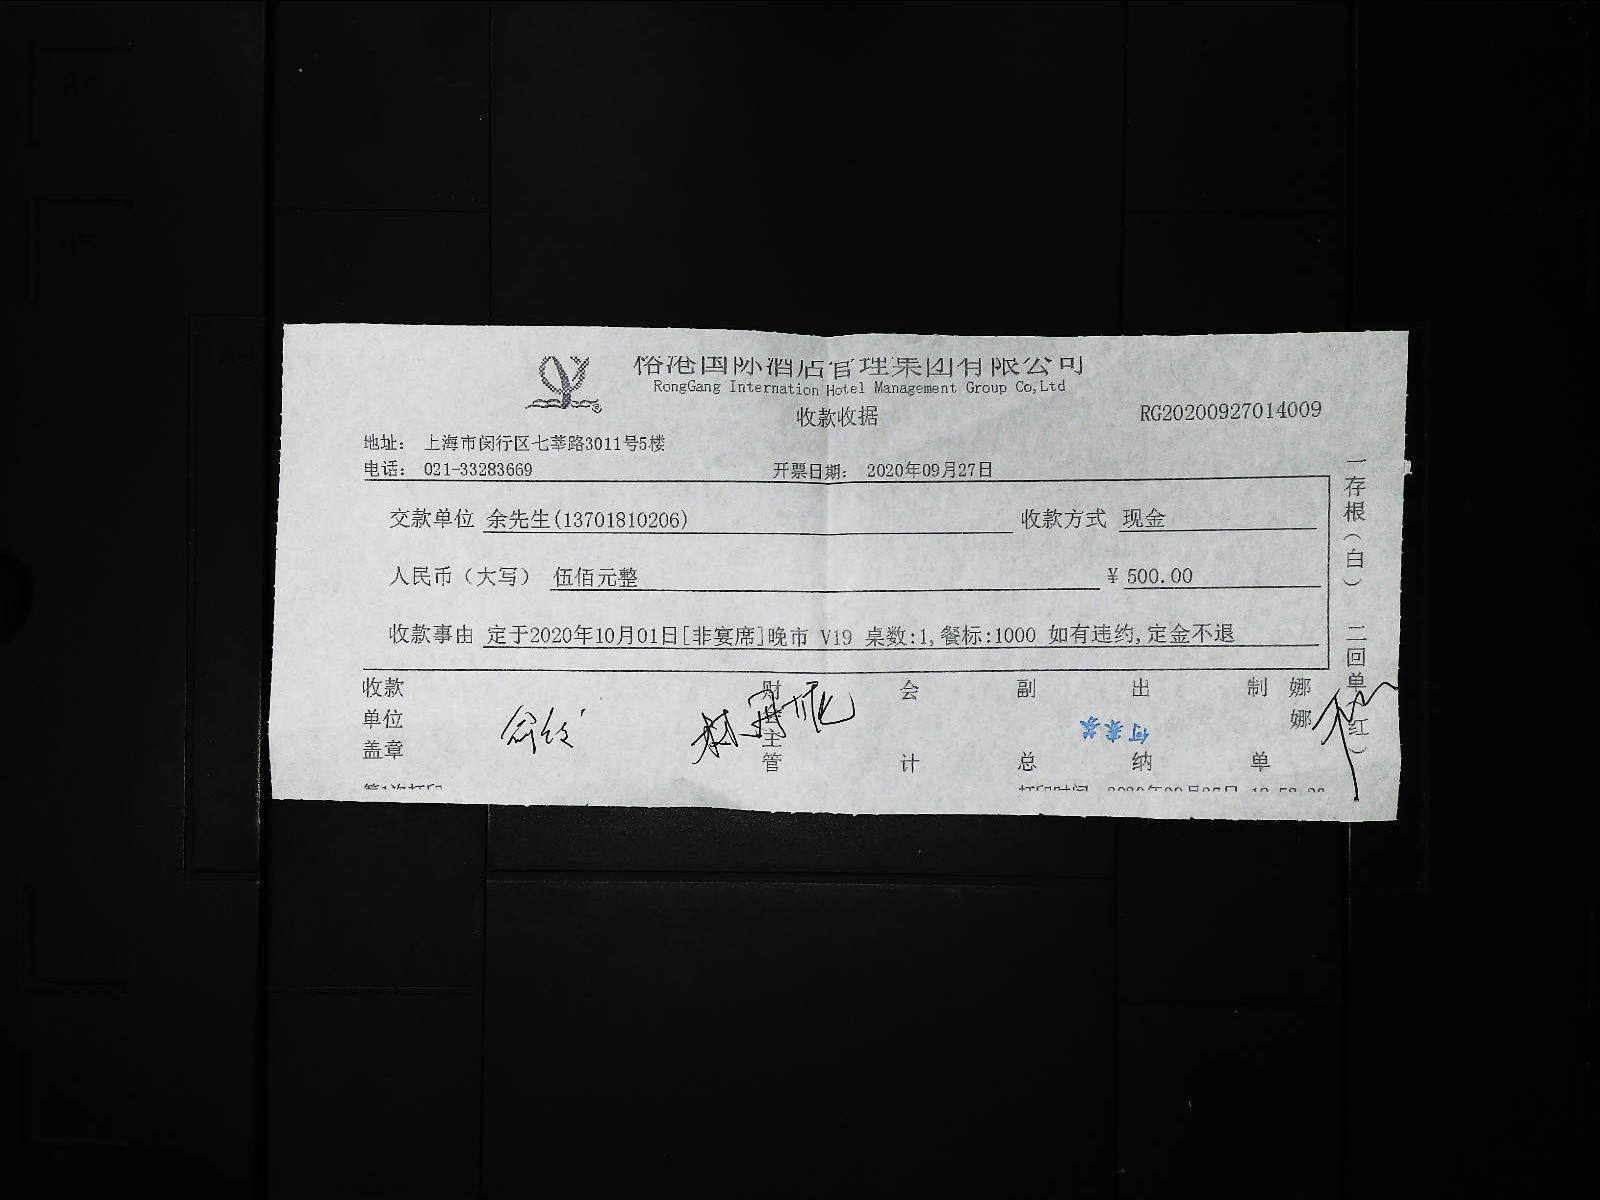 国际酒店管理集团有限公司
RongGang Internation Hotel Management Group Co,Ltd
收款收据
RG20200927014009
地址： 上海市闵行区七莘路3011号5楼
电话： 021-33283669 开票日期： 2020年09月27日
交款单位 余先生(13701810206) 收款方式 现金
人民币（大写） 伍佰元整 ￥500.00
收款事由 定于2020年10月01日[非宴席]晚市 V19 桌数:1,餐标:1000 如有违约,定金不退
收款单位盖章 财 主管 会计 副总 出纳 制单 娜娜
一存根（白） 二回单（红）